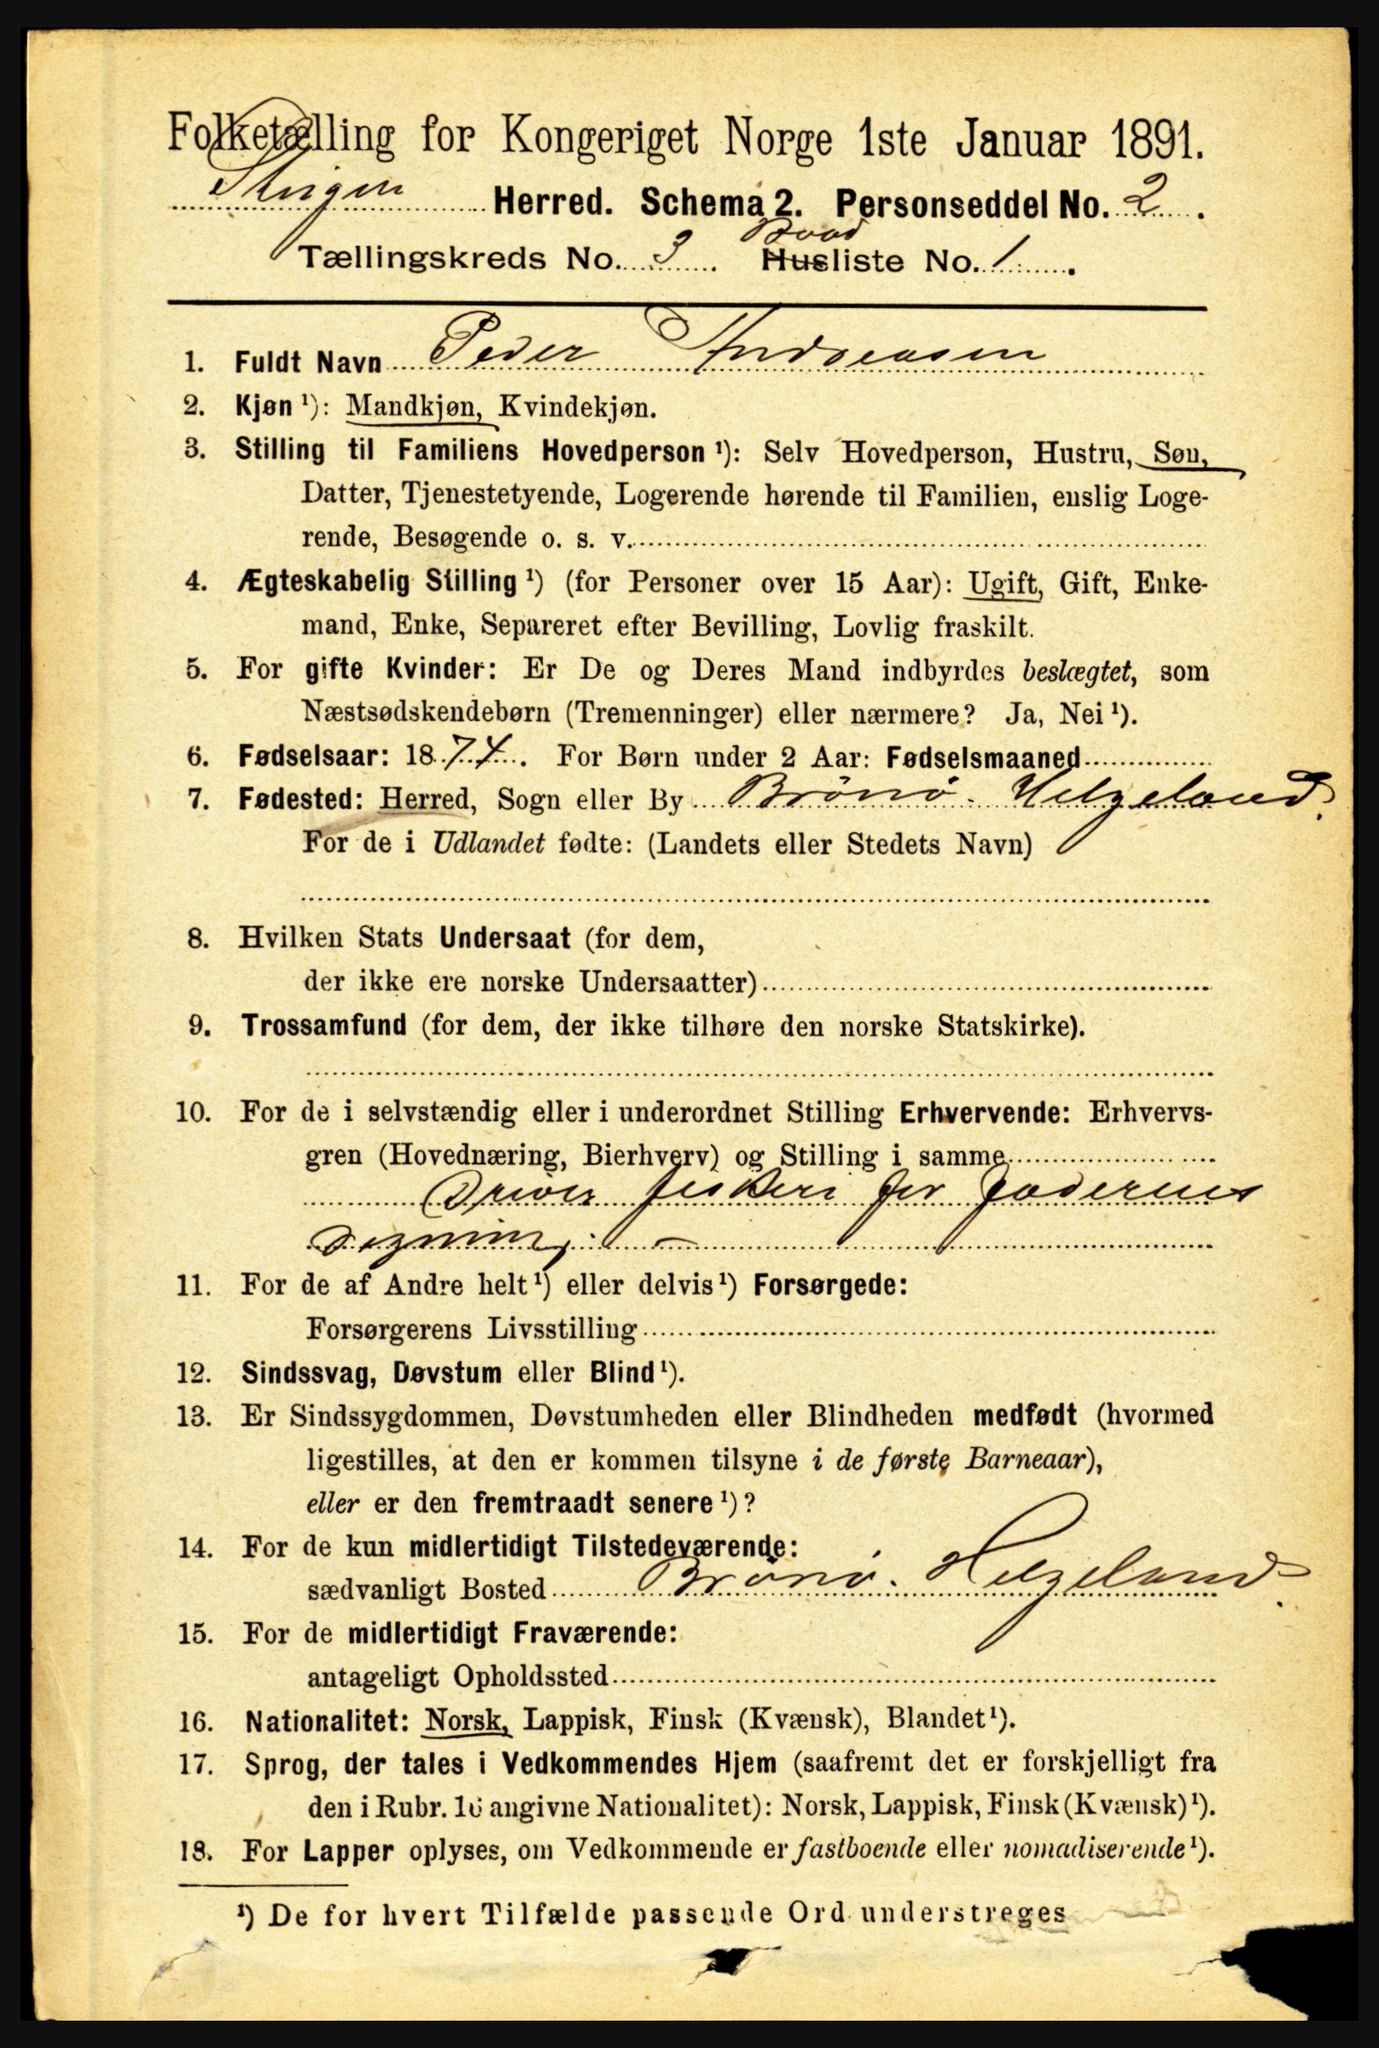 Folketælling for Kongeriget Norge 1ste Januar 1891.
Steigen Herred. Schema 2. Personseddel No. 2.
Baad
Tællingskreds No. 3. Husliste No. 1.
1. Fuldt Navn Peder Andreasen
2. Kjøn ¹): Mandkjøn, Kvindekjøn.
3. Stilling til Familiens Hovedperson ¹): Selv Hovedperson, Hustru, Søn,
Datter, Tjenestetyende, Logerende hørende til Familien, enslig Loge-
rende, Besøgende o. s. v.
4. Ægteskabelig Stilling ¹) (for Personer over 15 Aar): Ugift, Gift, Enke-
mand, Enke, Separeret efter Bevilling, Lovlig fraskilt.
5. For gifte Kvinder: Er De og Deres Mand indbyrdes beslægtet, som
Næstsødskendebørn (Tremenninger) eller nærmere? Ja, Nei ¹).
6. Fødselsaar: 1874. For Børn under 2 Aar: Fødselsmaaned
7. Fødested: Herred, Sogn eller By Brönö. Helgeland.
For de i Udlandet fødte: (Landets eller Stedets Navn)
8. Hvilken Stats Undersaat (for dem,
der ikke ere norske Undersaatter)
9. Trossamfund (for dem, der ikke tilhøre den norske Statskirke).
10. For de i selvstændig eller i underordnet Stilling Erhvervende: Erhvervs-
gren (Hovednæring, Bierhverv) og Stilling i samme
Driver fiskeri for faderens
regning. —
11. For de af Andre helt ¹) eller delvis ¹) Forsørgede:
Forsørgerens Livsstilling
12. Sindssvag, Døvstum eller Blind ¹).
13. Er Sindssygdommen, Døvstumheden eller Blindheden medfødt (hvormed
ligestilles, at den er kommen tilsyne i de første Barneaar),
eller er den fremtraadt senere ¹)?
14. For de kun midlertidigt Tilstedeværende:
sædvanligt Bosted Brönö. Helgeland.
15. For de midlertidigt Fraværende:
antageligt Opholdssted
16. Nationalitet: Norsk, Lappisk, Finsk (Kvænsk), Blandet ¹).
17. Sprog, der tales i Vedkommendes Hjem (saafremt det er forskjelligt fra
den i Rubr. 16 angivne Nationalitet): Norsk, Lappisk, Finsk (Kvænsk) ¹).
18. For Lapper oplyses, om Vedkommende er fastboende eller nomadiserende ¹).
¹) De for hvert Tilfælde passende Ord understreges